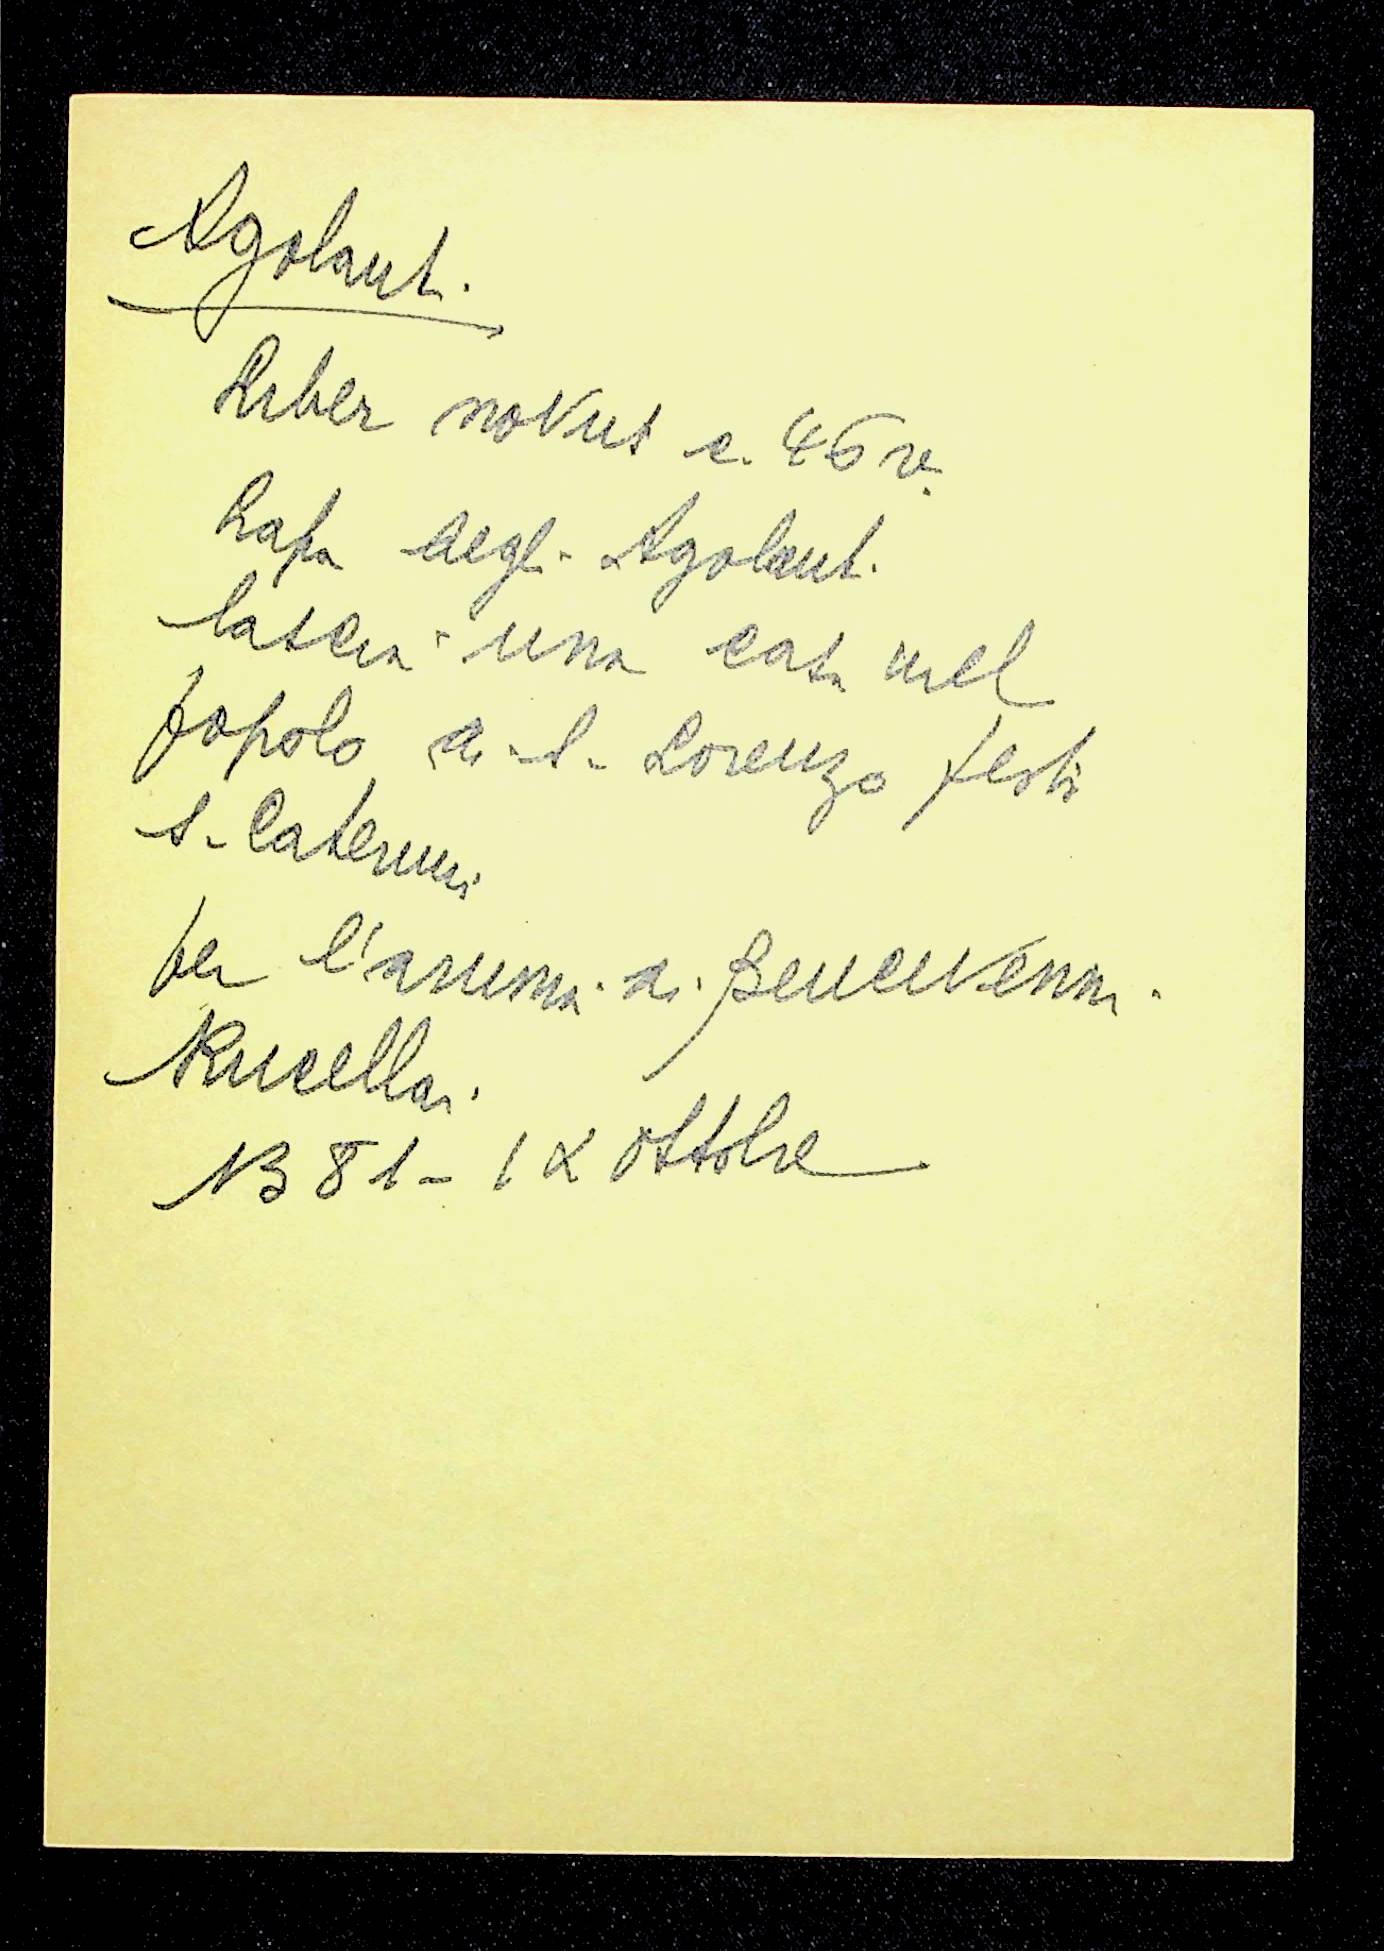 Agolanti
Liber novus c. 46 v.
Lapa degli Agolanti
lascia una casa nel
popolo di S. Lorenzo festa
S. Caterina
per l'anima di Bencivenni
Rucellai
1381 - IX ottobre